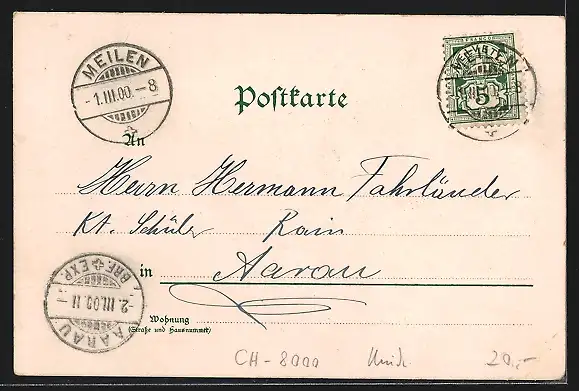 MEILEN
-1.III.00.-8
FRANCO
MEILEN
5
Postkarte
An
Herrn Hermann Fahrländer
Kt. Schüler Rain
in Aarau
BRF. EXP.
-2.III.00.11-
AARAU
Wohnung
(Straße und Hausnummer)
CH-8000
20,-